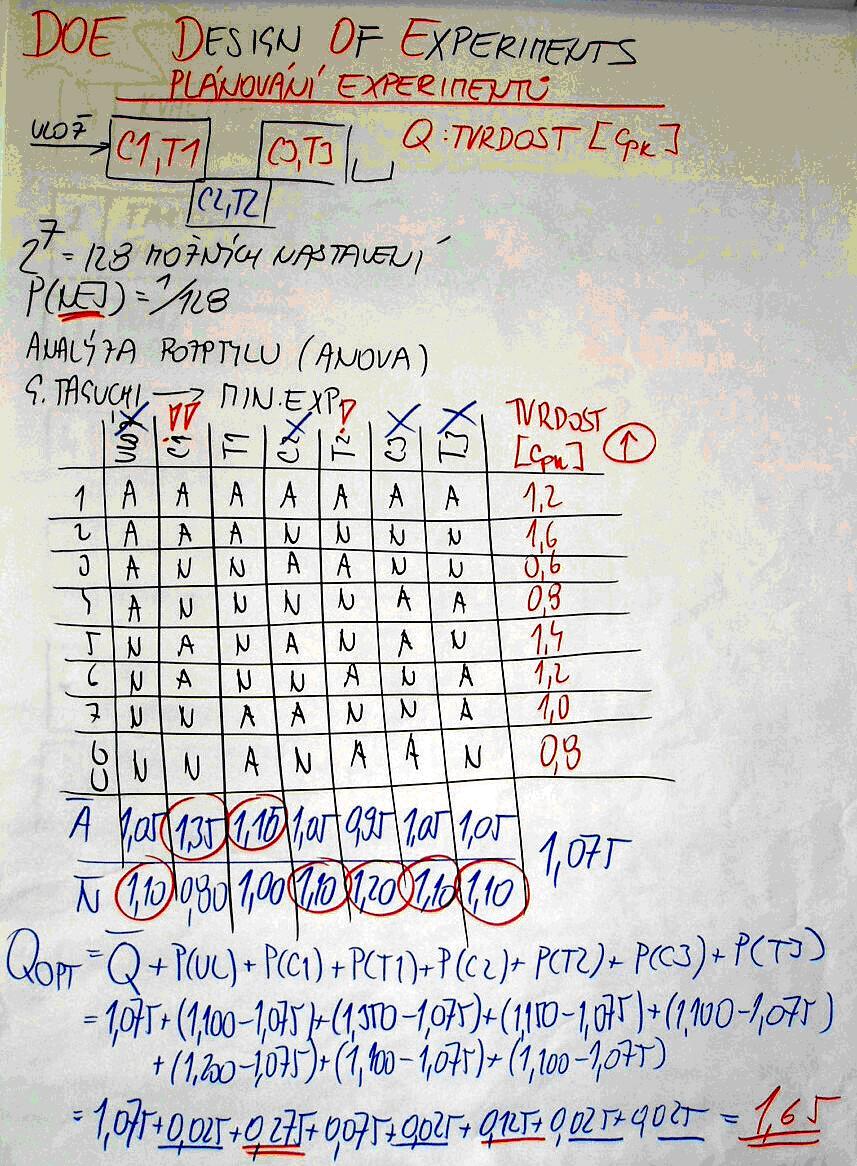 DOE DESIGN OF EXPERIMENTS
PLÁNOVÁNÍ EXPERIMENTŮ
ULOŽ C1,T1 C3,T3 Q:TVRDOST [Cpk]
C2,T2
2^7 = 128 MOŽNÝCH NASTAVENÍ
P(NEJ) = 1/128
ANALÝZA ROZPTYLU (ANOVA)
G. TAGUCHI → MIN. EXP.
ULOŽ C1 T1 C2 T2 C3 T3 TVRDOST [Cpk] ↑
1 A A A A A A A 1,2
2 A A A N N N N 1,6
3 A N N A A N N 0,6
4 A N N N N A A 0,8
5 N A N A N A N 1,4
6 N A N N A N A 1,2
7 N N A A N N A 1,0
8 N N A N A A N 0,8
A̅ 1,05 1,35 1,15 1,05 0,95 1,05 1,05
1,075
N̅ 1,10 0,80 1,00 1,10 1,20 1,10 1,10
QOPT = Q̅ + P(UL) + P(C1) + P(T1) + P(C2) + P(T2) + P(C3) + P(T3)
= 1,075 + (1,100-1,075) + (1,350-1,075) + (1,150-1,075) + (1,100-1,075)
+ (1,200-1,075) + (1,100-1,075) + (1,100-1,075)
= 1,075 + 0,025 + 0,275 + 0,075 + 0,025 + 0,125 + 0,025 + 0,025 = 1,65